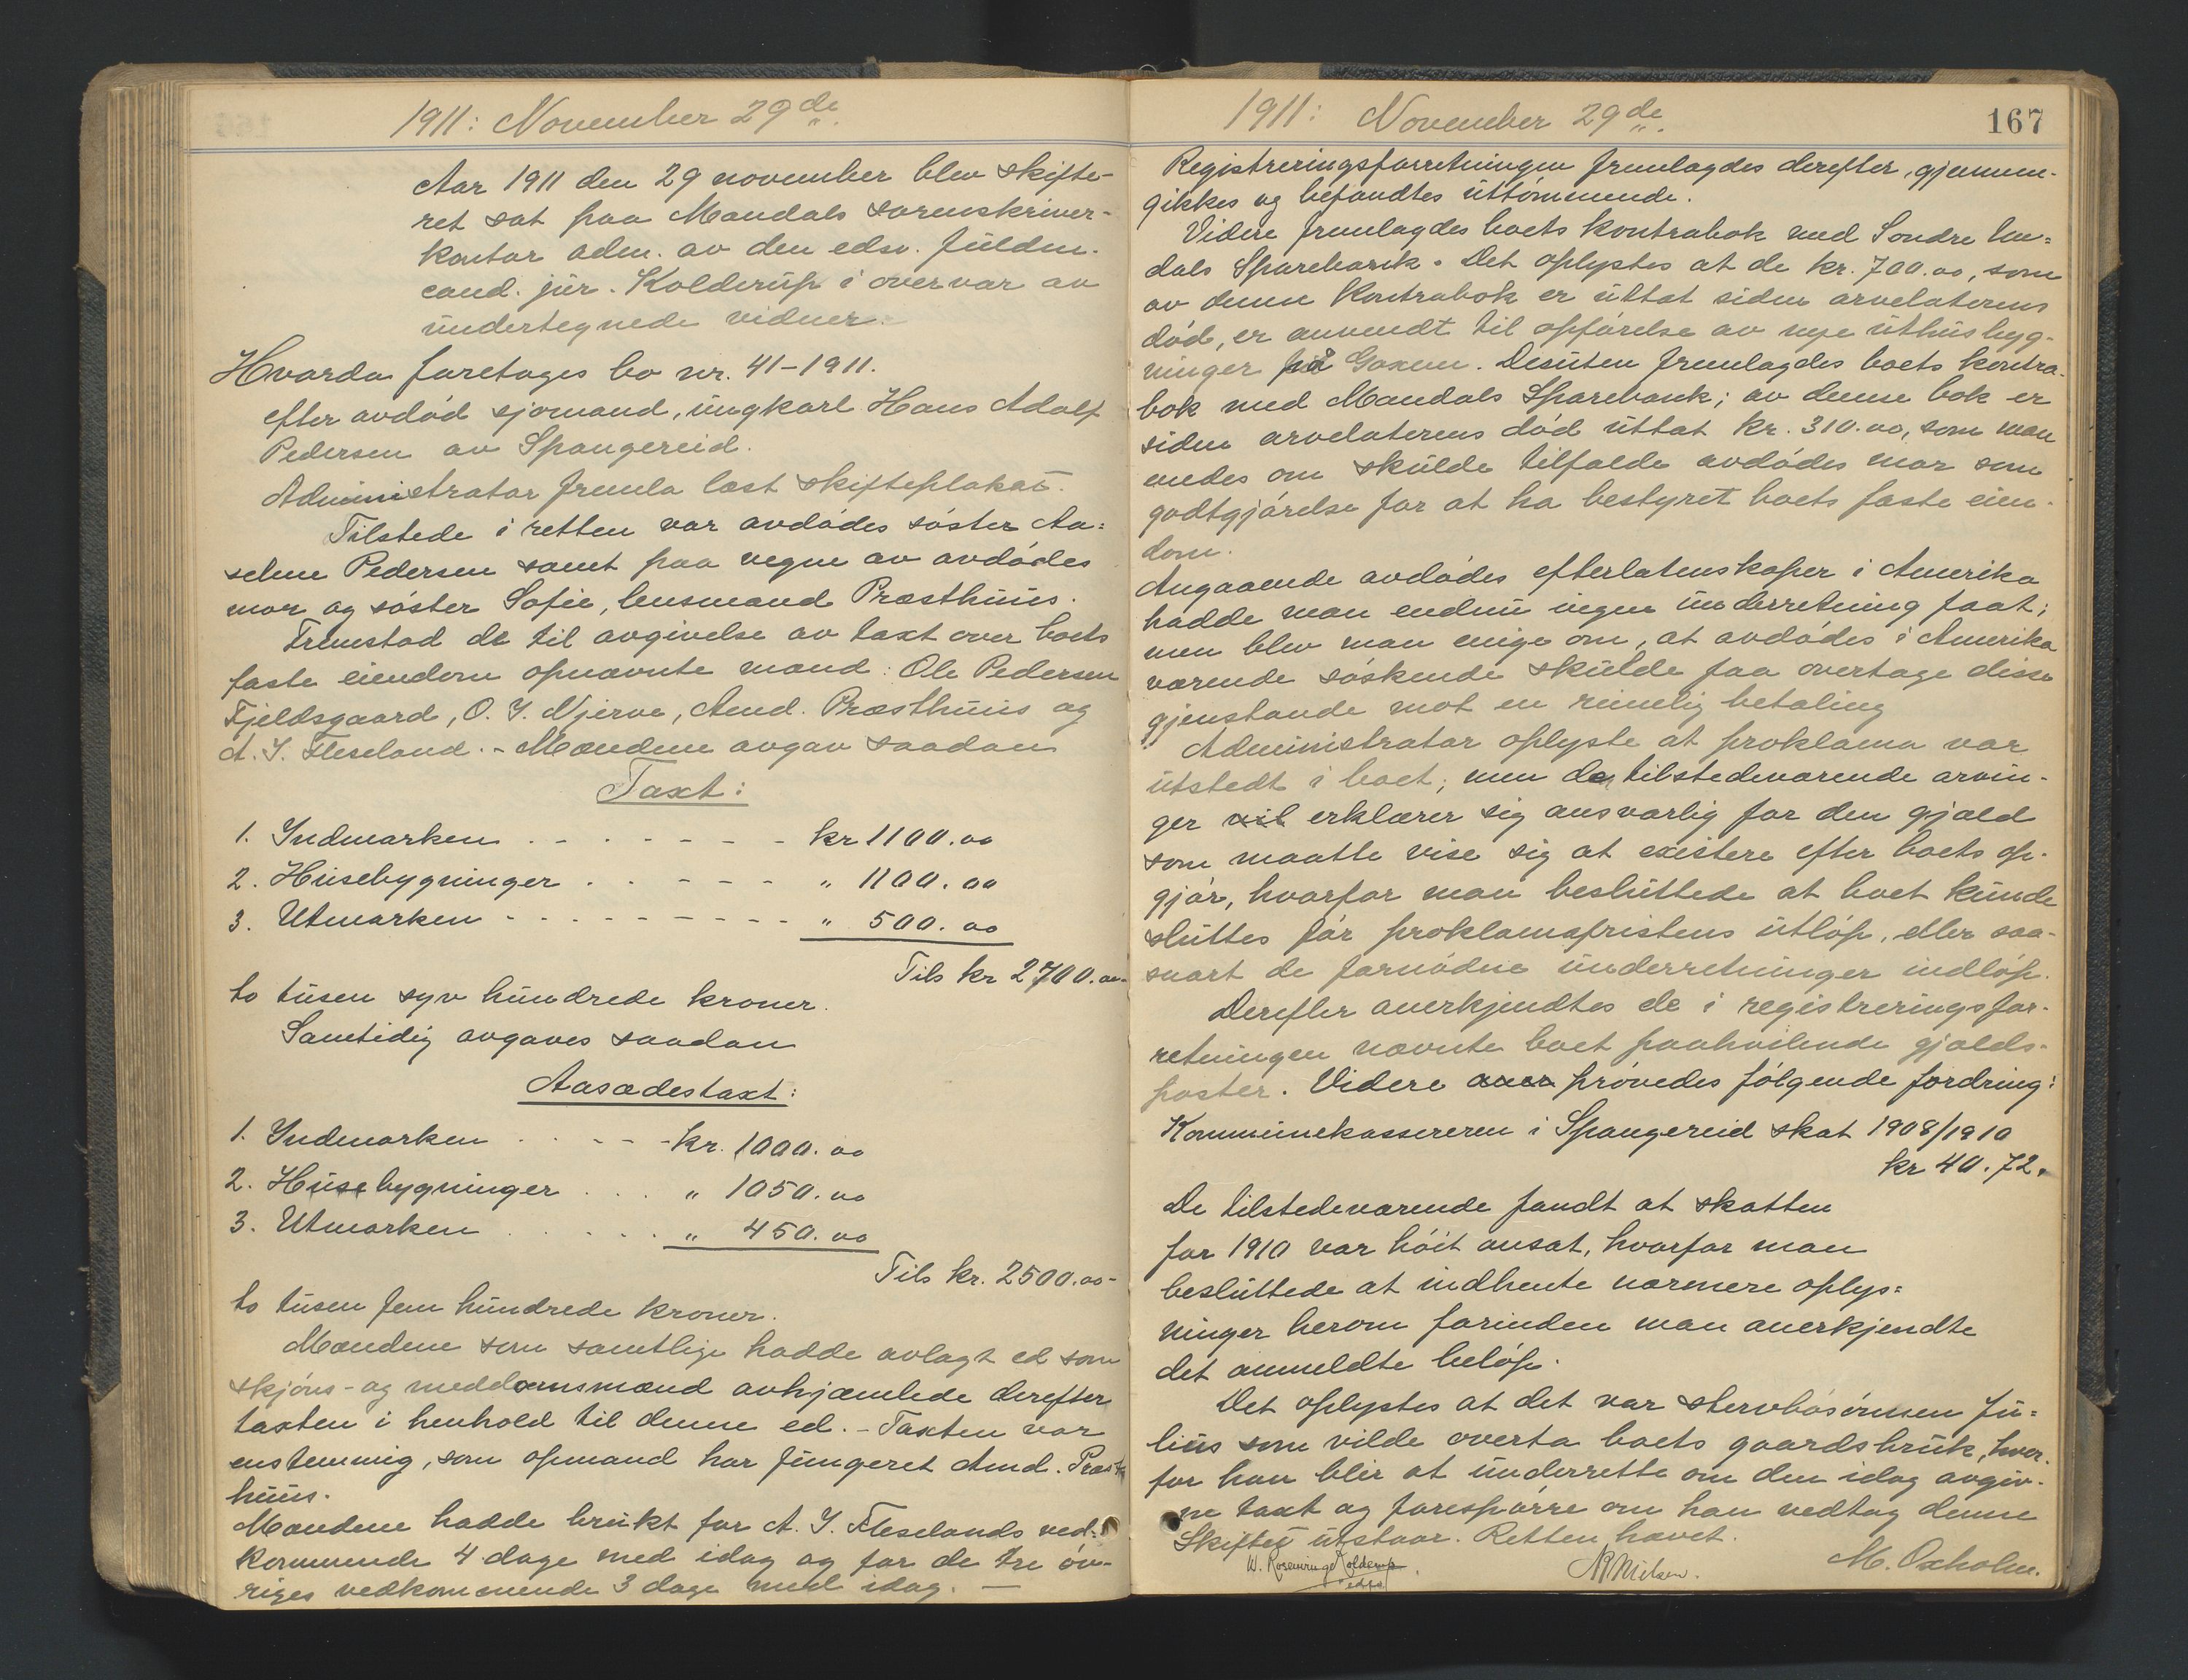 1911: November 29de.
Aar 1911 den 29 november blev skifte-
ret sat paa Mandals sorenskriver-
kontor adm. av den edsv. fuldm.
cand. jur. Kolderup i overvær av
undertegnede vidner.
Hvorda foretages bo nr. 41-1911.
efter avdød sjømand, ungkarl Hans Adolf
Pedersen av Spangereid.
Administrator fremla læst skifteplakat.
Tilstede i retten var avdødes søster Aa=
seline Pedersen samt paa vegne av avdødes
mor og søster Sofie, lensmand Præsthuus.
Fremstod de til avgivelse av taxt over boets
faste eiendom opnævnte mænd: Ole Pedersen
Fjeldsgaard, O. J. Njerve, Amd. Præsthuus og
A. J. Fleseland. - Mændene avgav saadan
Taxt:
1. Indmarken . - . - - - - kr 1100.00
2. Husebygninger . . - - - - " 1100.00
3. Utmarken - . - . - - - - - " 500.00
Tils kr 2700.00-
to tusen syv hundrede kroner.
Samtidig avgaves saadan
Aasædestaxt:
1. Indmarken . . - - - kr. 1000.00
2. Husebygninger . . . " 1050.00
3. Utmarken . . . . . " 450.00
Tils kr. 2500.00-
to tusen fem hundrede kroner.
Mændene som samtlige hadde avlagt ed som
skjøns- og meddomsmænd avhjæmlede derefter
taxten i henhold til denne ed. - Taxten var
enstemmig, som opmand har fungeret Amd. Præst-
huus.
Mændene hadde brukt for A. J. Fleselands ved-
kommende 4 dage med idag og for de tre øv-
riges vedkommende 3 dage med idag. -
1911: November 29de.
167
Registreringsforretningen fremlagdes derefter, gjennem-
gikkes og befandtes uttømmende.
Videre fremlagdes boets kontrabok med Søndre Un=
dals Sparebank. Det oplystes at de kr. 700.00, som
av denne kontrabok er uttat siden arvelaterens
død, er anvendt til opførelse av nye uthusbyg-
ninger på Gaxun. Desuten fremlagdes boets kontra-
bok med Mandals Sparebank; av denne bok er
siden arvelaterens død uttat kr. 310.00, som man
enedes om skulde tilfalde avdødes mor som
godtgjørelse for at ha bestyret boets faste eien-
dom.
Angaaende avdødes efterlatenskaper i Amerika
hadde man endnu ingen underretning faat;
men blev man enige om, at avdødes i Amerika
værende søskende skulde faa overtage disse
gjenstande mot en rimelig betaling
Administrator oplyste at proklama var
utstedt i boet; men de tilstedeværende arvin-
ger vil erklærer sig ansvarlig for den gjæld
som maatte vise sig at existere efter boets op-
gjør, hvorfor man besluttede at boet kunde
sluttes før proklamafristens utløp, eller saa-
snart de fornødne underretninger indløp.
Derefter anerkjendtes de i registreringsfor-
retningen nævnte boet paahvilende gjælds-
poster. Videre aner prøvedes følgende fordring:
Kommunekassereren i Spangereid skat 1908/1910
kr 40.72.
De tilstedeværende fandt at skatten
for 1910 var høit ansat, hvorfor man
besluttede at indhente nærmere oplys=
ninger herom forinden man anerkjendte
det anmeldte beløp.
Det oplystes at det var stervbosønnen Ju=
lius som vilde overta boets gaardsbruk, hvor-
for han blir at underrette om den idag avgiv-
ne taxt og forespørre om han vedtog denne
Skiftet utstaar. Retten hævet.
W. Rosenvinge Kolderup
edsv
N Nilsen.
M. Oxholm.